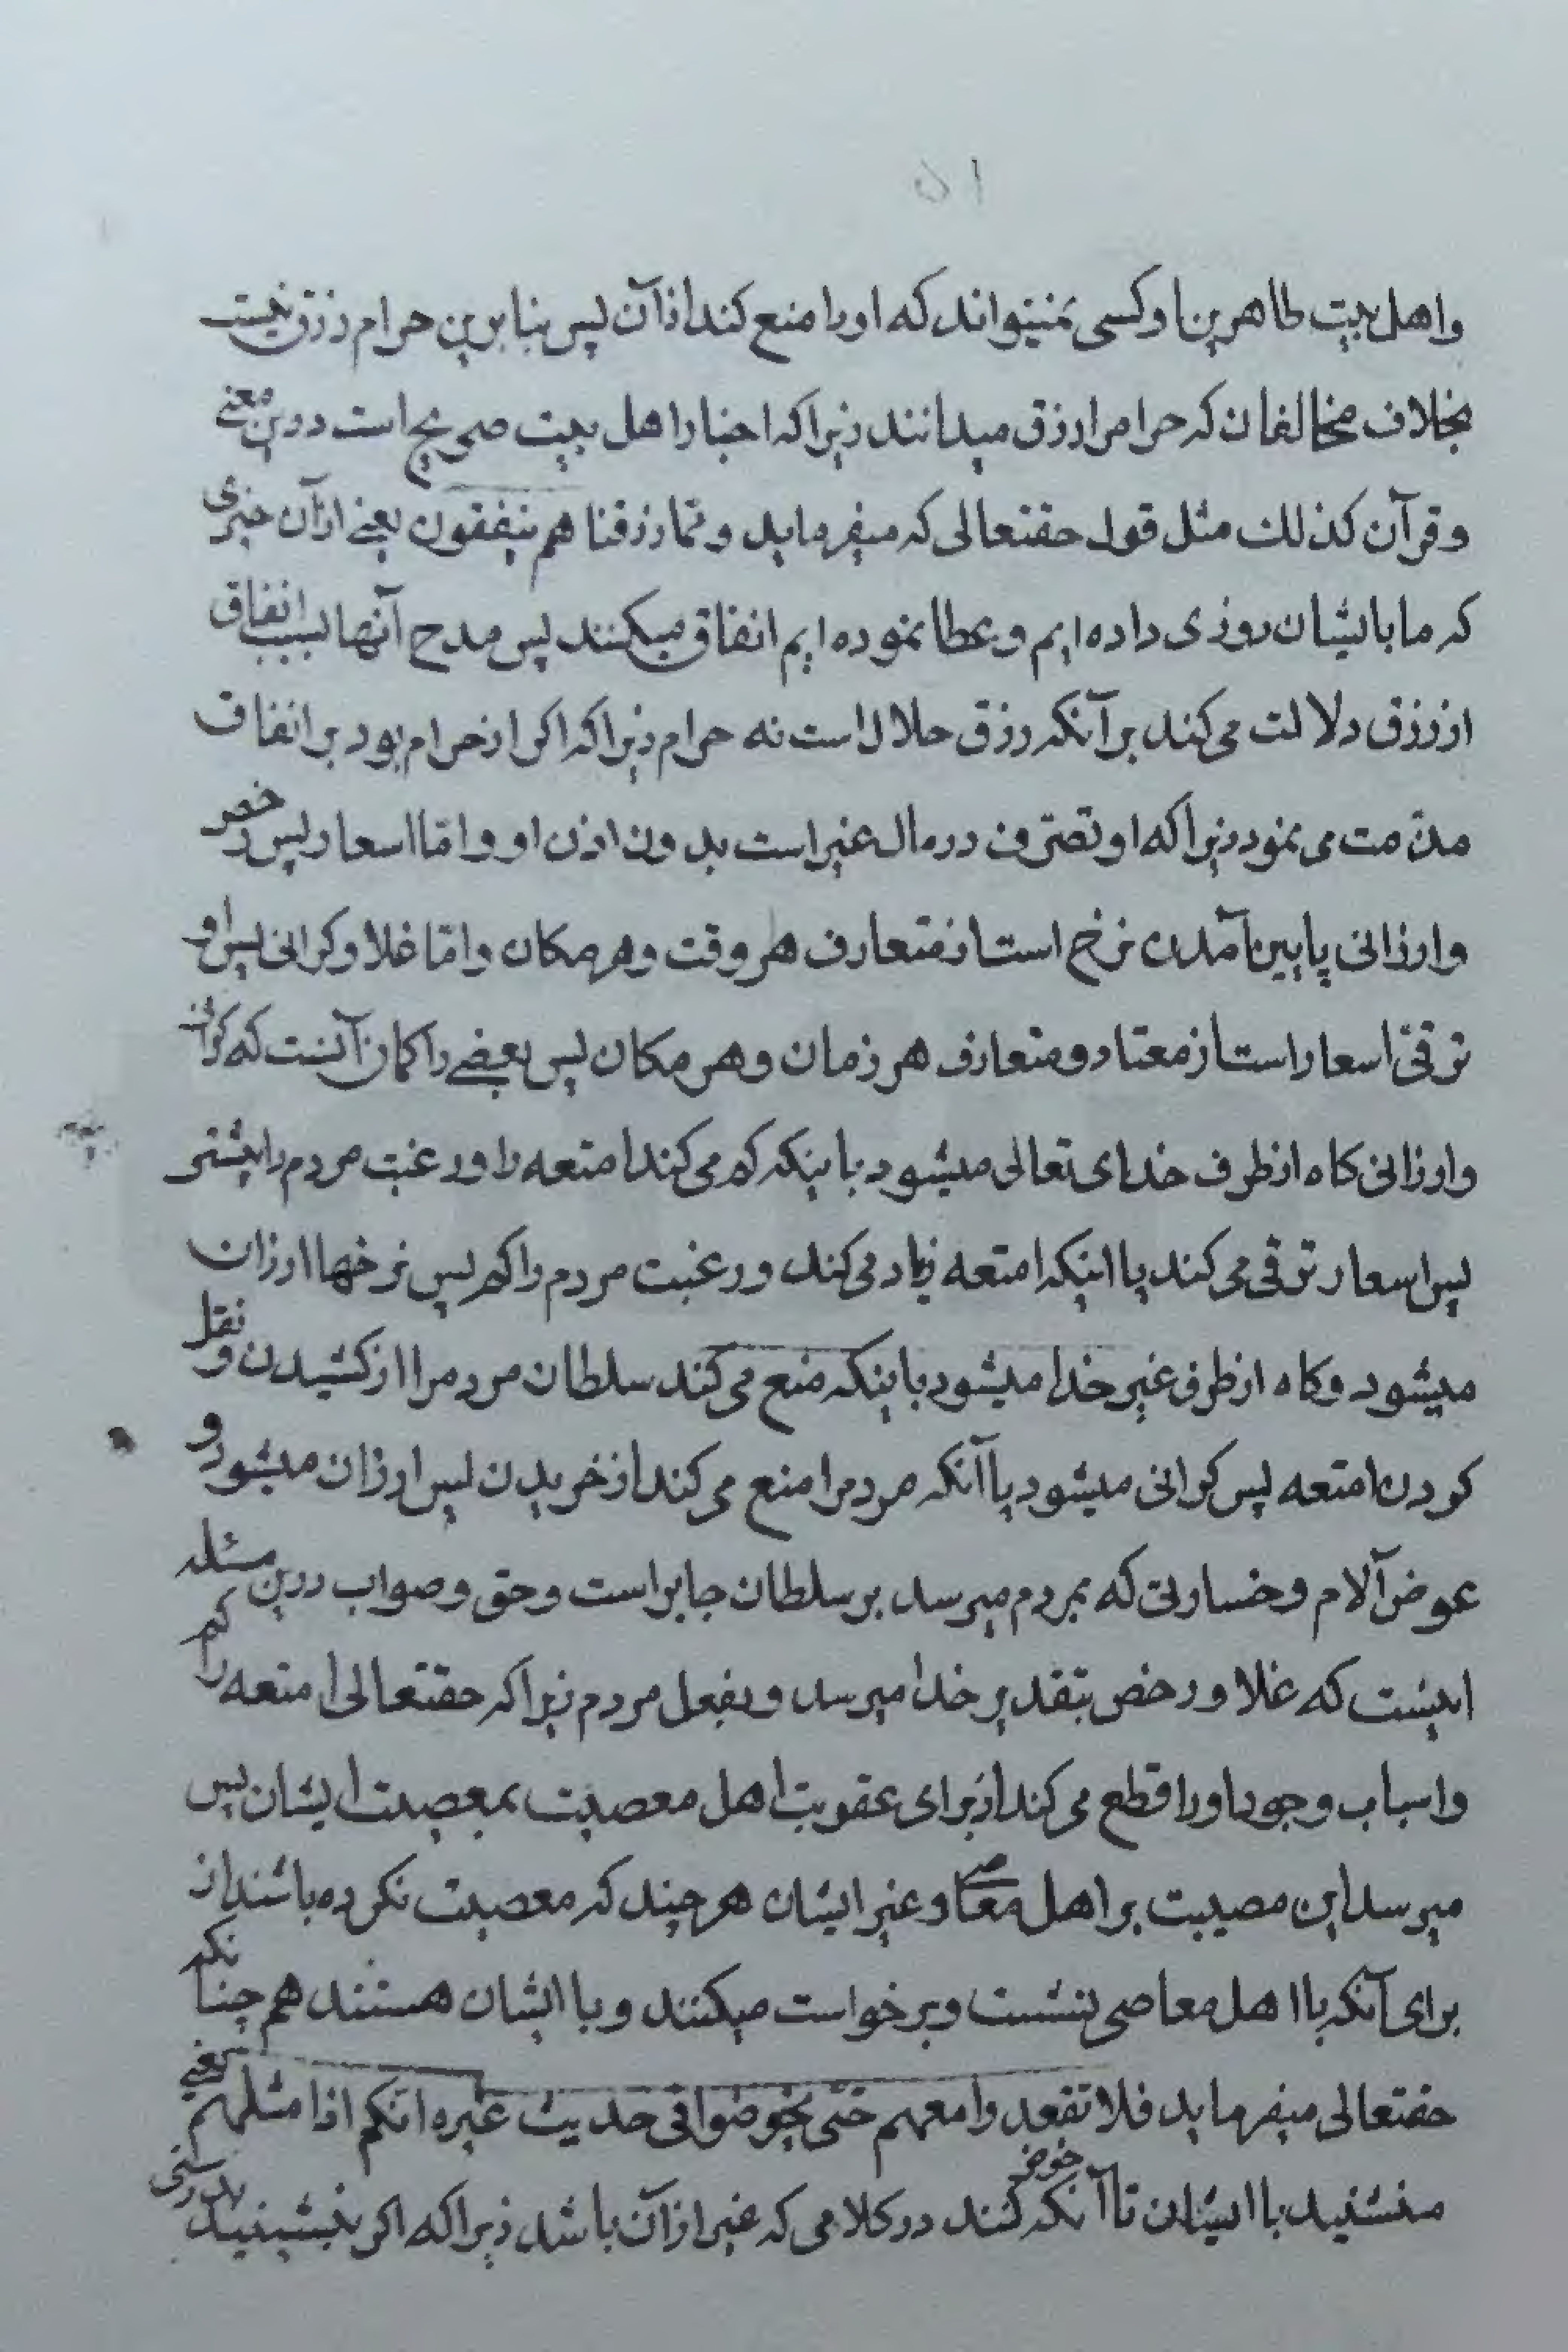 ۵۱
واهل بیت طاهرین او کسی نمیتواند که او را منع کند از آن پس بنابرین حرام رزق نیست
بخلاف مخالفان که حرام را رزق میدانند زیراکه اخبار اهل بیت صریح است درین معنے
و قرآن کذلك مثل قول حقتعالی که میفرماید و ممّا رزقناهم ینفقون یعنے از آن چیزی
که ما بایشان روزی داده ایم و عطا نموده ایم انفاق میکنند پس مدح آنها بسبب انفاق
از رزق دلالت می کند بر آنکه رزق حلال است نه حرام زیراکه اکر از حرام بود بر انفاق
مذمّت می نمود زیراکه او تصرّف در مال غیر است بدون اذن او و امّا اسعار پس رخص
و ارزانی پایین آمدن نرخ است از متعارف هر وقت و هر مکان و امّا غلا و کرانی پس او
ترقّئ اسعار است از معتاد و متعارف هر زمان و هر مکان پس بعضے را کمان آنست که کرانی
و ارزانی کاه از طرف خدای تعالی میشود باینکه کم می کند امتعه را و رغبت مردم را بیشتر
پس اسعار ترقی می کند یا اینکه امتعه زیاد می کند و رغبت مردم را کم پس نرخها ارزان
میشود و کاه از طرف غیر خدا میشود باینکه منع می کند سلطان مردم را از کشیدن و نقل
کردن امتعه پس کرانی میشود یا آنکه مردم را منع می کند از خریدن پس ارزان میشود و
عوض آلام و خسارتی که بمردم میرسد بر سلطان جابر است و حق و صواب درین مسئله
اینست که غلا و رخص بتقدیر خدا میرسد و بفعل مردم زیراکه حقتعالی امتعه را کم
و اسباب وجود او را قطع می کند از برای عقوبت اهل معصیت بمعصیت ایشان پس
میرسد این مصیبت بر اهل معاصی و غیر ایشان هر چند که معصیت نکرده باشند از
برای آنکه با اهل معاصی نشست و برخواست میکنند و با ایشان هستند هم چنانکه
حقتعالی میفرماید فلا تقعدوا معهم حتّی یخوضوا فی حدیث غیره انّکم اذا مثلهم یعنے
منشنید با ایشان تا آنکه خوض کنند در کلامی که غیر از آن باشد زیراکه اکر بنشینید بدرستی